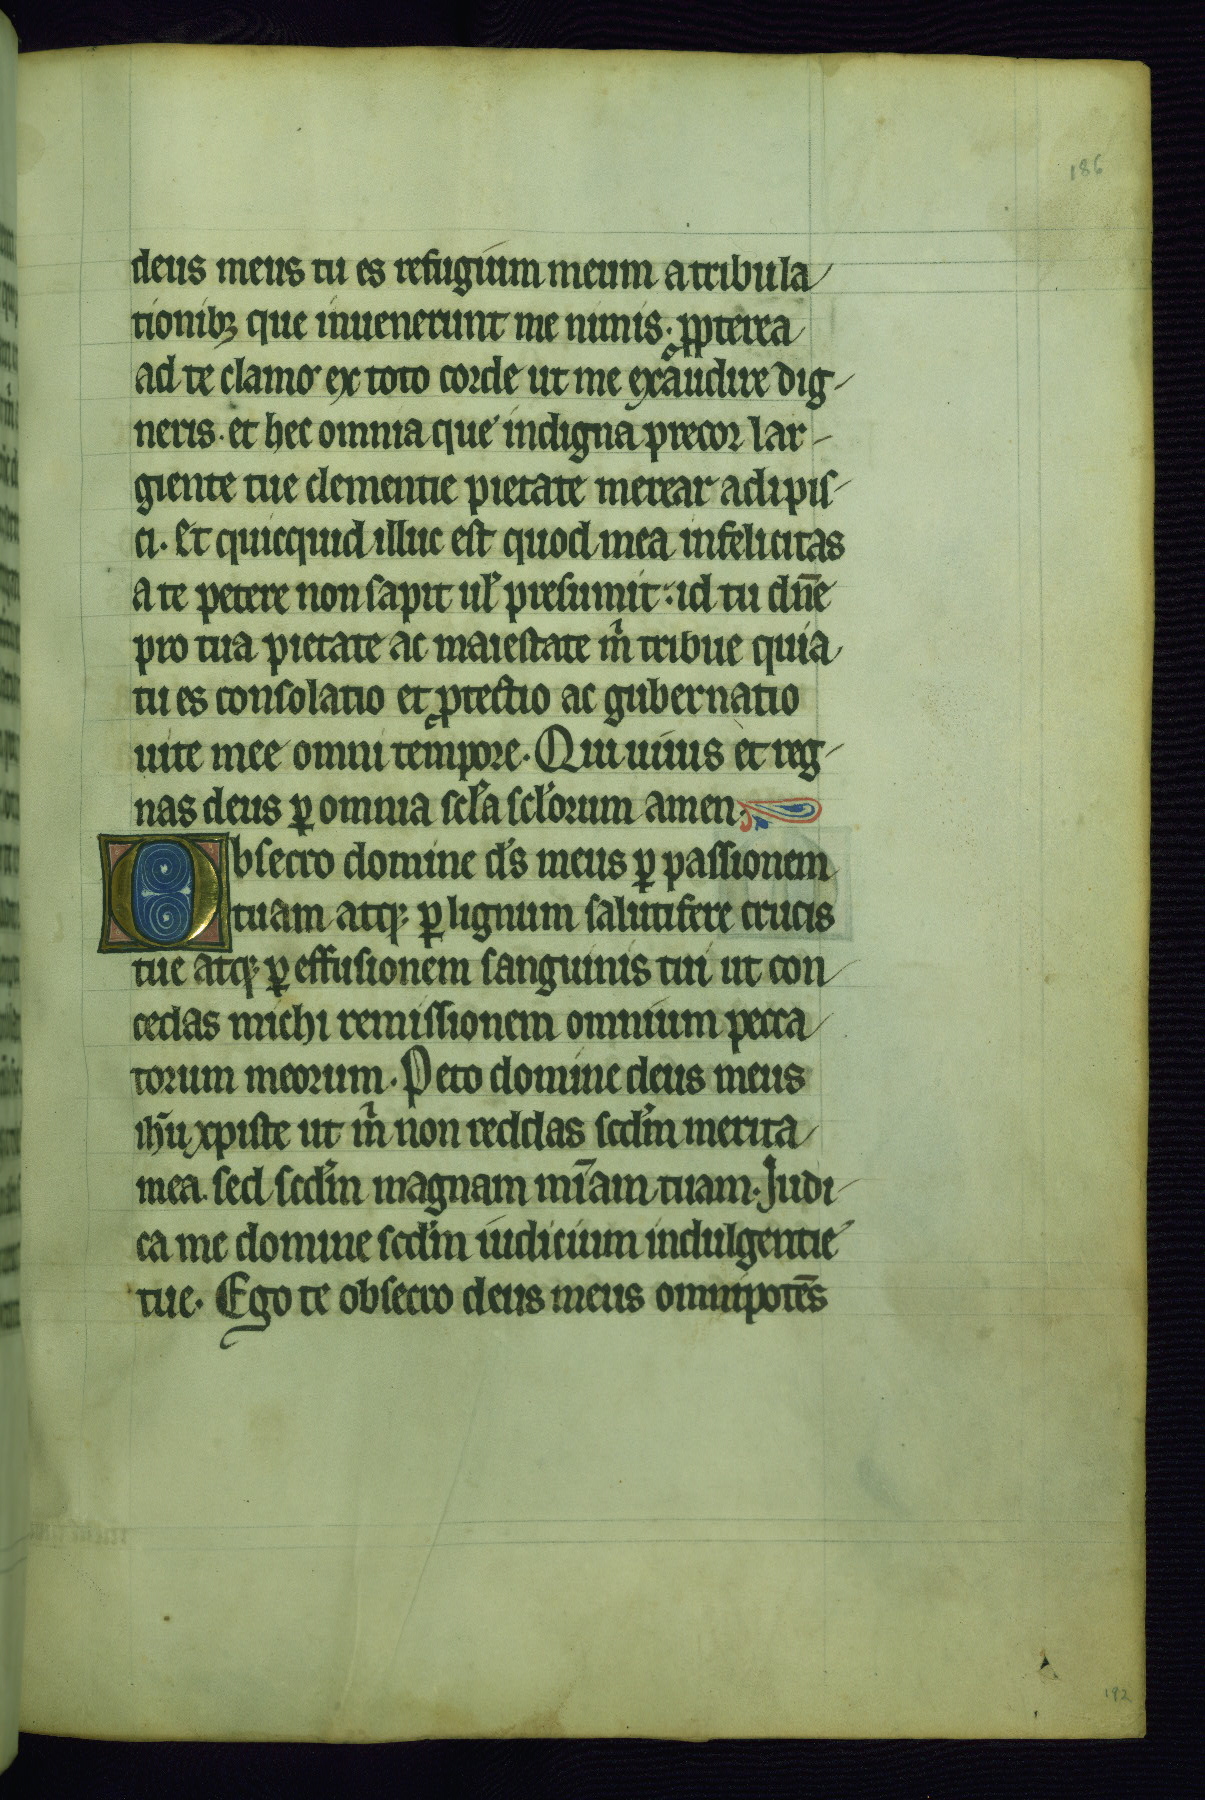 186
deus meus tu es refugium meum a tribula
tionibꝫ que inuenerunt me nimis. ꝓpterea
ad te clamo ex toto corde ut me exaudire dig-
neris. et hec omnia que indigna precor lar-
giente tue clementie pietate merear adipis-
ci. Et quicquid illuc est quod mea infelicitas
a te petere non sapit ul̾ presumit: id tu dn̄e
pro tua pietate ac maiestate m̍ tribue quia
tu es consolatio et ꝓtectio ac gubernatio
uite mee omni tempore. Qui uiuis et reg-
nas deus ꝑ omnia scl̾a scl̾orum amen.
Obsecro domine ds̾ meus ꝑ passionem
tuam atqꝫ ꝑ lignum salutifere crucis
tue atqꝫ ꝑ effusionem sanguinis tui ut con
cedas michi remissionem omnium pecca
torum meorum. Peto domine deus meus
ih̄u xpiste ut m̍ non reddas scd̾m merita
mea. sed scd̾m magnam mīam tuam. Judi-
ca me domine scd̾m iudicium indulgentie
tue. Ego te obsecro deus meus omnipotēs
192